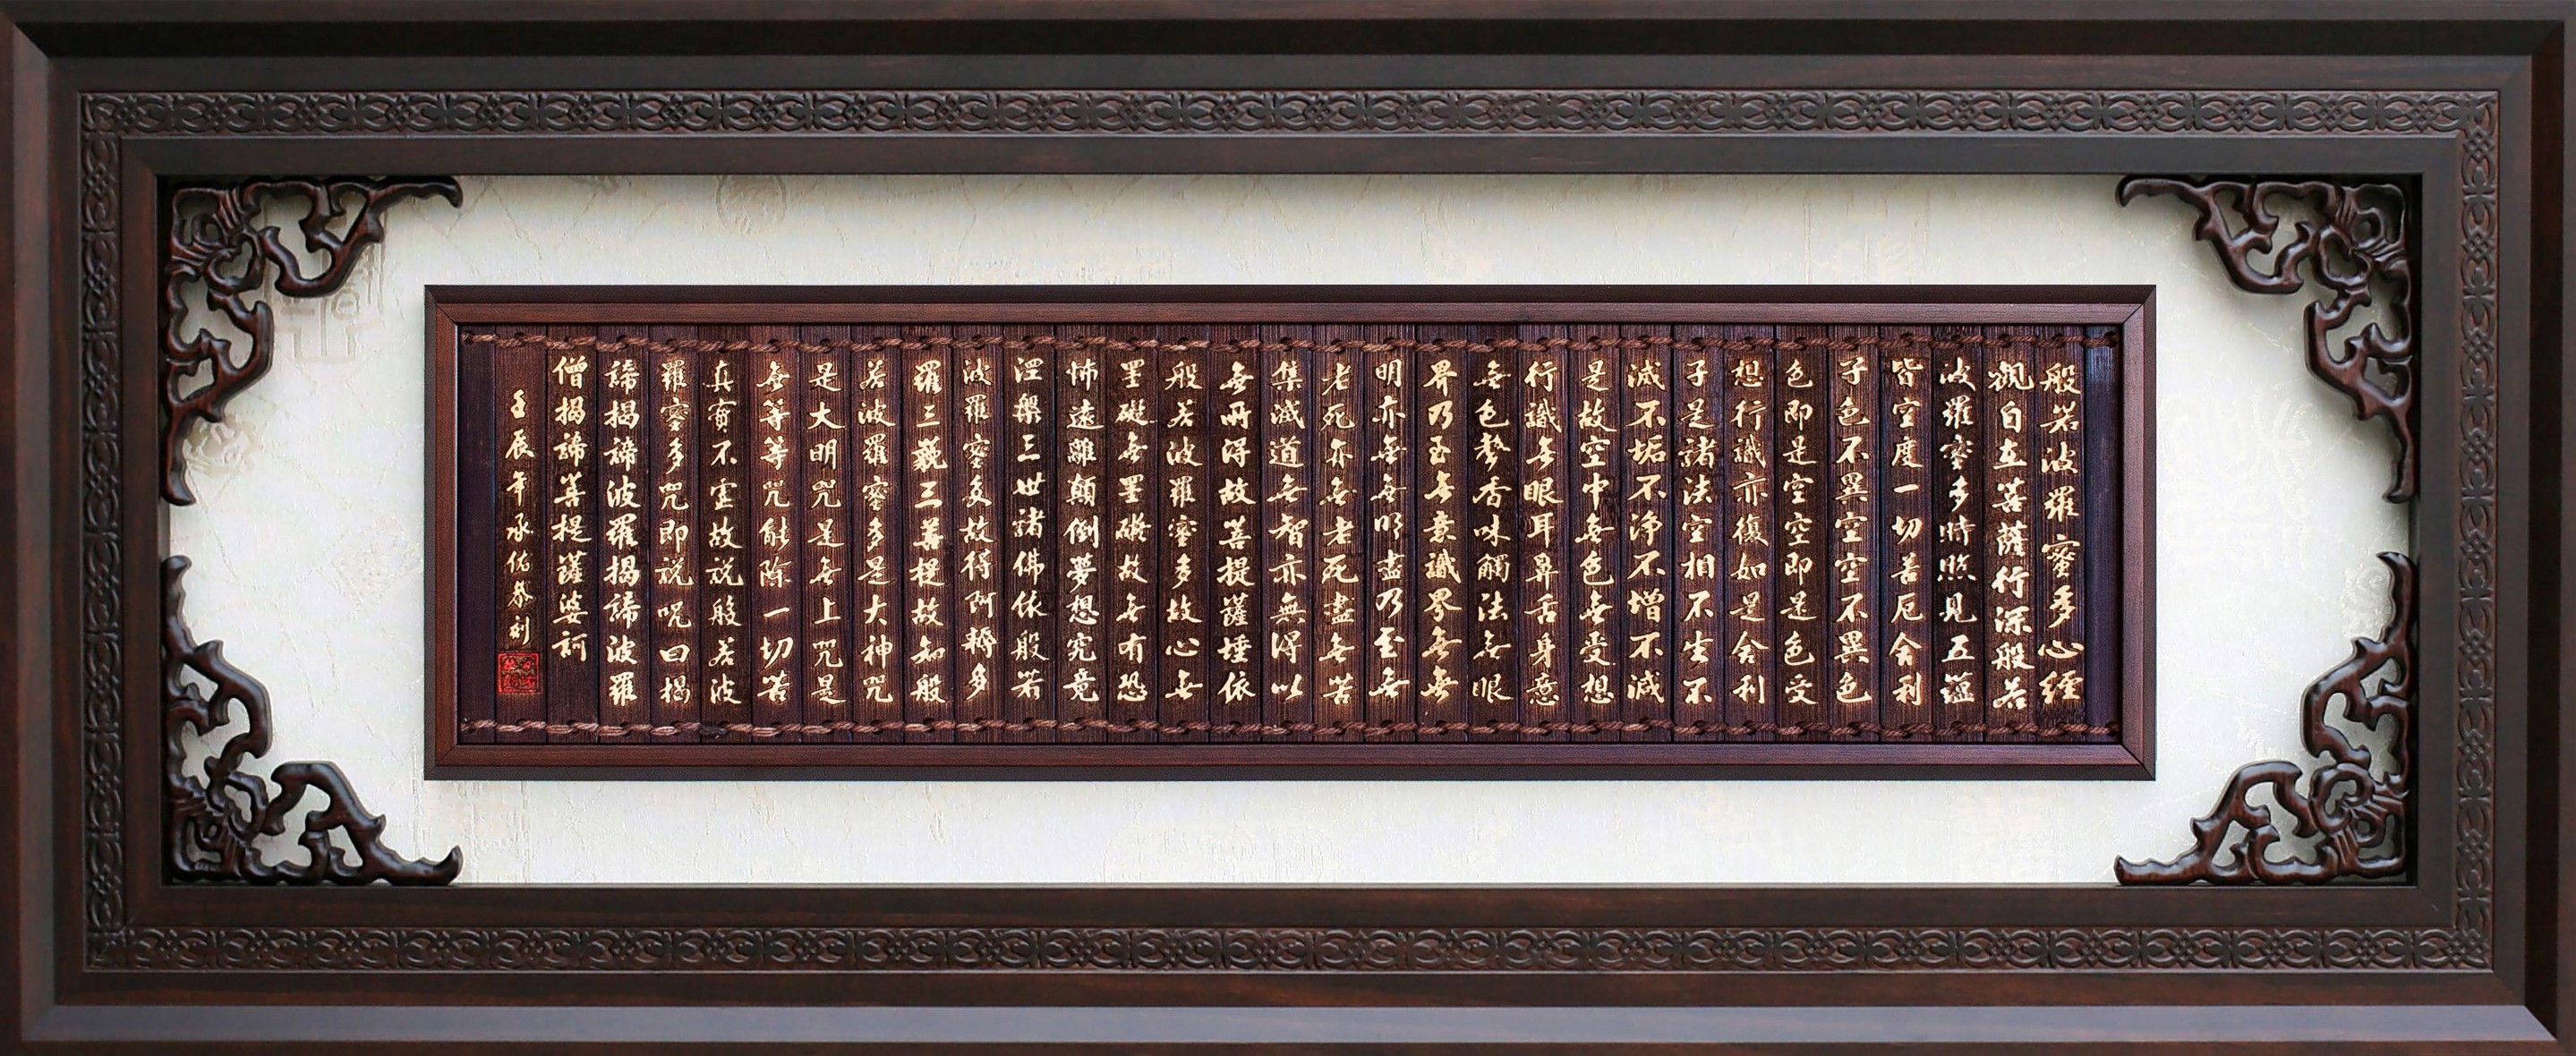 般若波羅蜜多心經
觀自在菩薩行深般若
波羅蜜多時照見五蘊
皆空度一切苦厄舍利
子色不異空空不異色
色即是空空即是色受
想行識亦復如是舍利
子是諸法空相不生不
滅不垢不淨不增不減
是故空中無色無受想
行識無眼耳鼻舌身意
無色聲香味觸法無眼
界乃至無意識界無無
明亦無無明盡乃至無
老死亦無老死盡無苦
集滅道無智亦無得以
無所得故菩提薩埵依
般若波羅蜜多故心無
罣礙無罣礙故無有恐
怖遠離顛倒夢想究竟
涅槃三世諸佛依般若
波羅蜜多故得阿耨多
羅三藐三菩提故知般
若波羅蜜多是大神咒
是大明咒是無上咒是
無等等咒能除一切苦
真實不虛故說般若波
羅蜜多咒即說呪曰揭
諦揭諦波羅揭諦波羅
僧揭諦菩提薩婆訶
壬辰年承佑恭刻